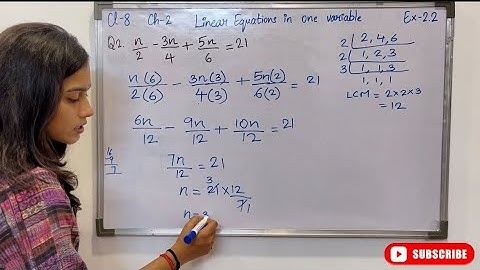 Cl-8 Ch-2 Linear Equations in one variable Ex-2.2
Q2. n/2 - 3n/4 + 5n/6 = 21
n(6)/2(6) - 3n(3)/4(3) + 5n(2)/6(2) = 21
6n/12 - 9n/12 + 10n/12 = 21
7n/12 = 21
n = 21 3 × 12/7 1
n = 3
16
9
7
2 | 2, 4, 6
2 | 1, 2, 3
3 | 1, 1, 3
1, 1, 1
LCM = 2×2×3
= 12
SUBSCRIBE